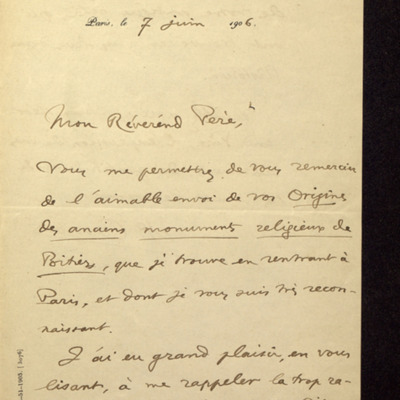 Paris, le 7 juin 1906.
Mon Révérend Père,
Vous me permettrez de vous remercier
de l'aimable envoi de vos Origines
des anciens monuments religieux de
Poitiers, que je trouve en rentrant à
Paris, et dont je vous suis très recon-
naissant.
J'ai eu grand plaisir, en vous
lisant, à me rappeler la trop ra-